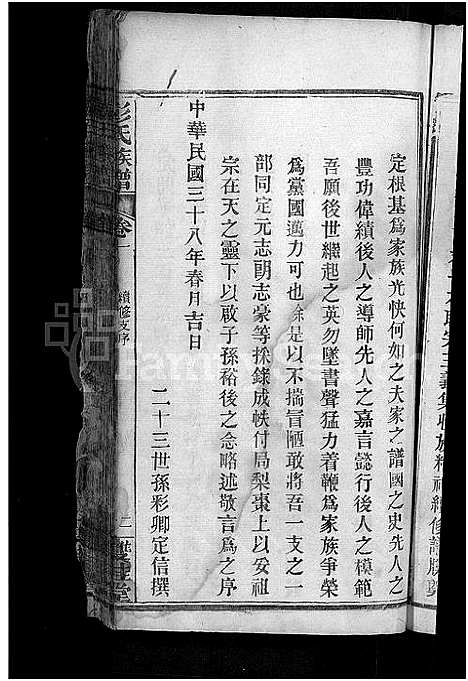 定根基為家族光快何如之夫家之譜國之史先人之
豐功偉績後人之導師先人之嘉言懿行後人之模範
吾願後世繼起之英勿墜書聲猛力着鞭為家族爭榮
為黨國邁力可也余是以不揣冒陋敢將吾一支之一
部同定元志朗志豪等採錄成帙付局梨棗上以安祖
宗在天之靈下以啟子孫裕後之念略述敬言為之序
中華民國三十八年春月吉日
二十三世孫彩卿定信撰
彭氏族譜
卷一
續修支序
二
堂